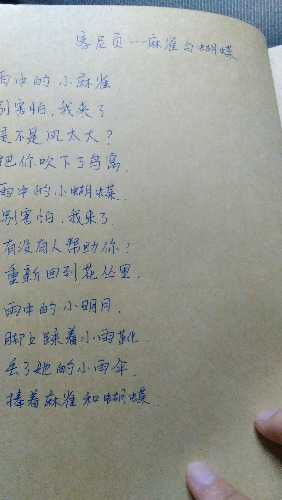 扉尾页——麻雀与蝴蝶
雨中的小麻雀
别害怕,我来了
是不是风太大?
把你吹下了鸟窝.
雨中的小蝴蝶.
别害怕,我来了.
有没有人帮助你?
重新回到花丛里.
雨中的小明月.
脚上踩着小雨靴.
丢了她的小雨伞.
捧着麻雀和蝴蝶.